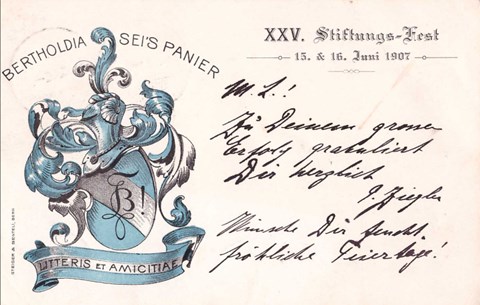 BERTHOLDIA SEI'S PANIER
XXV. Stiftungs-Fest
15. & 16. Juni 1907
M. L.!
Zu Deinem grossen
Erfolg gratuliert
Dir herzlich
J. Ziegler
Wünsche Dir feucht
fröhliche Feiertage!
B!
LITTERIS ET AMICITIAE